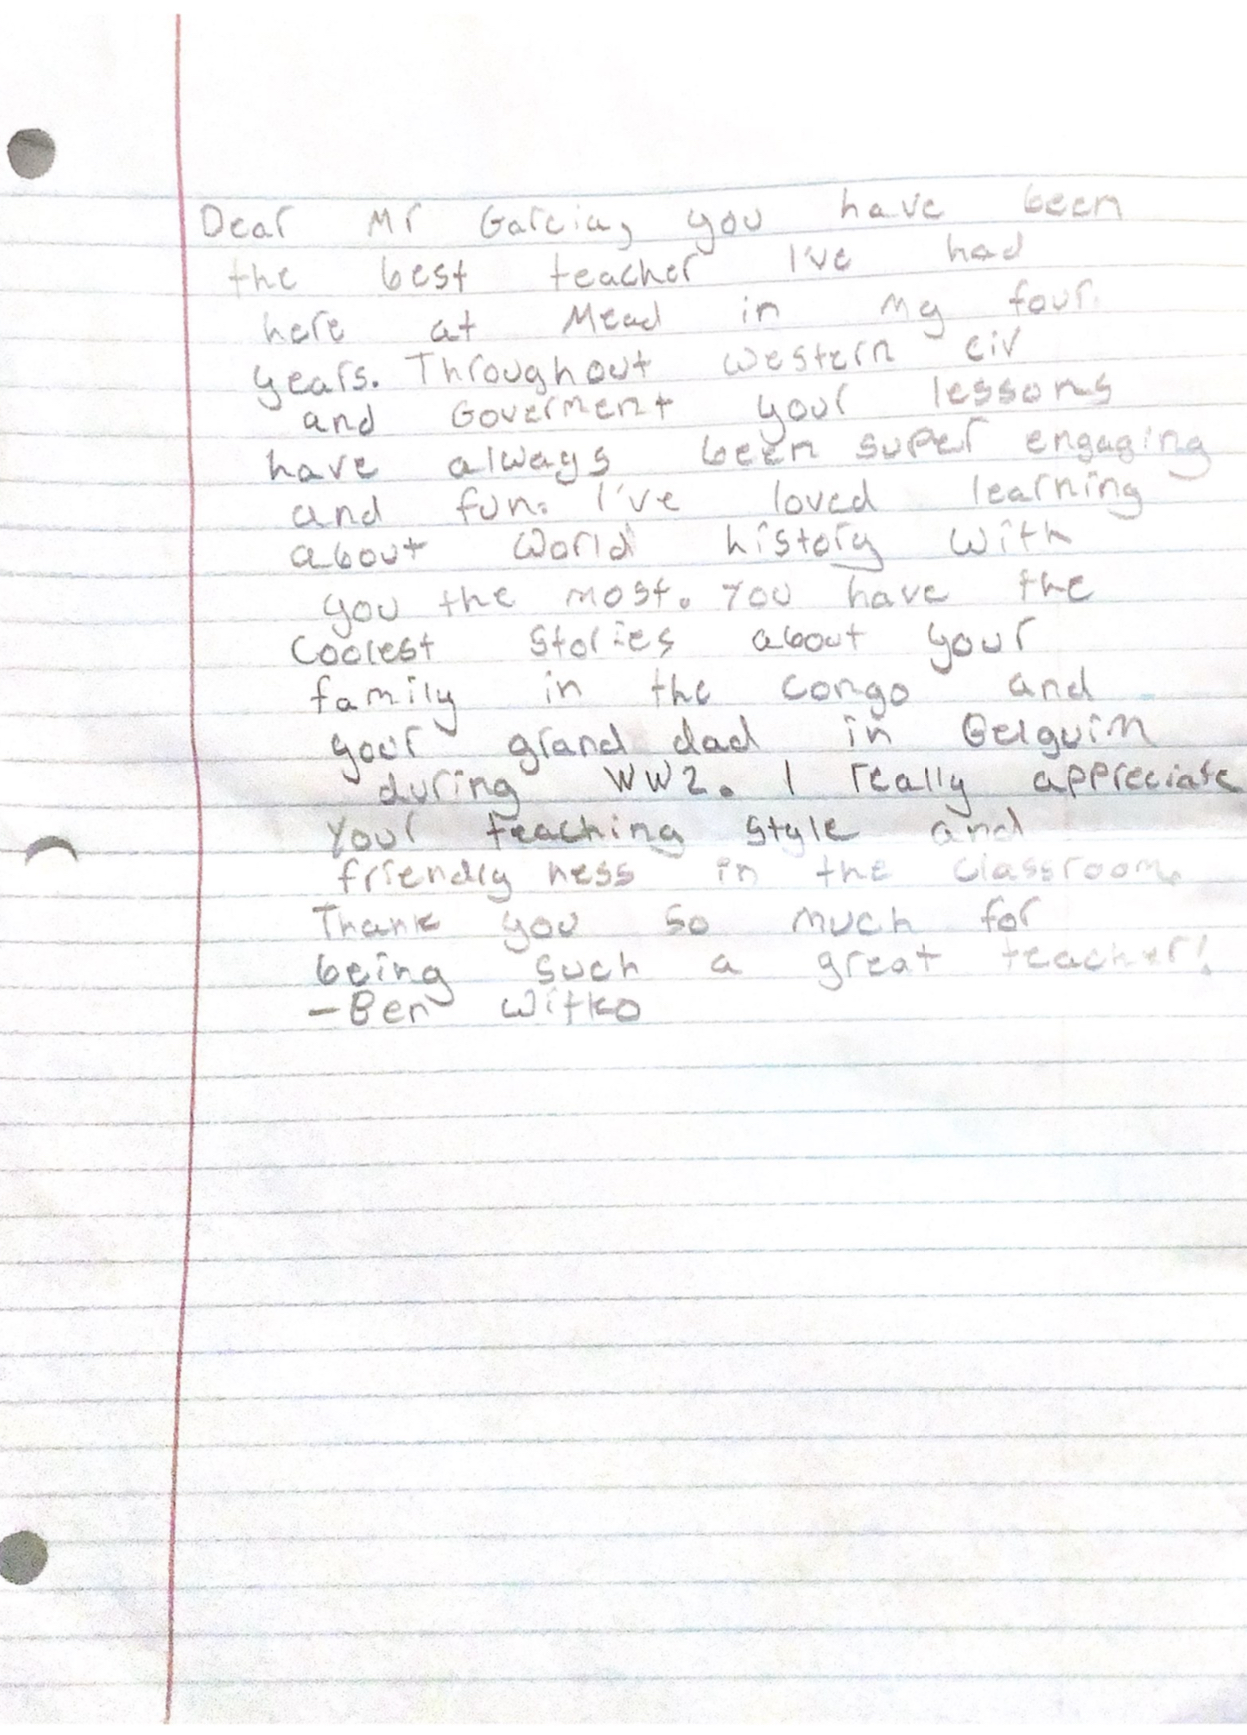 Dear Mr Garcia, you have been
the best teacher I've had
here at Mead in my four
years. Throughout western civ
and Goverment your lessons
have always been super engaging
and fun. I've loved learning
about world history with
you the most. You have the
coolest stories about your
family in the congo and
your grand dad in Belguim
during WW2. I really appreciate
your teaching style and
friendly ness in the classroom.
Thank you so much for
being such a great teacher!
- Ben Witko